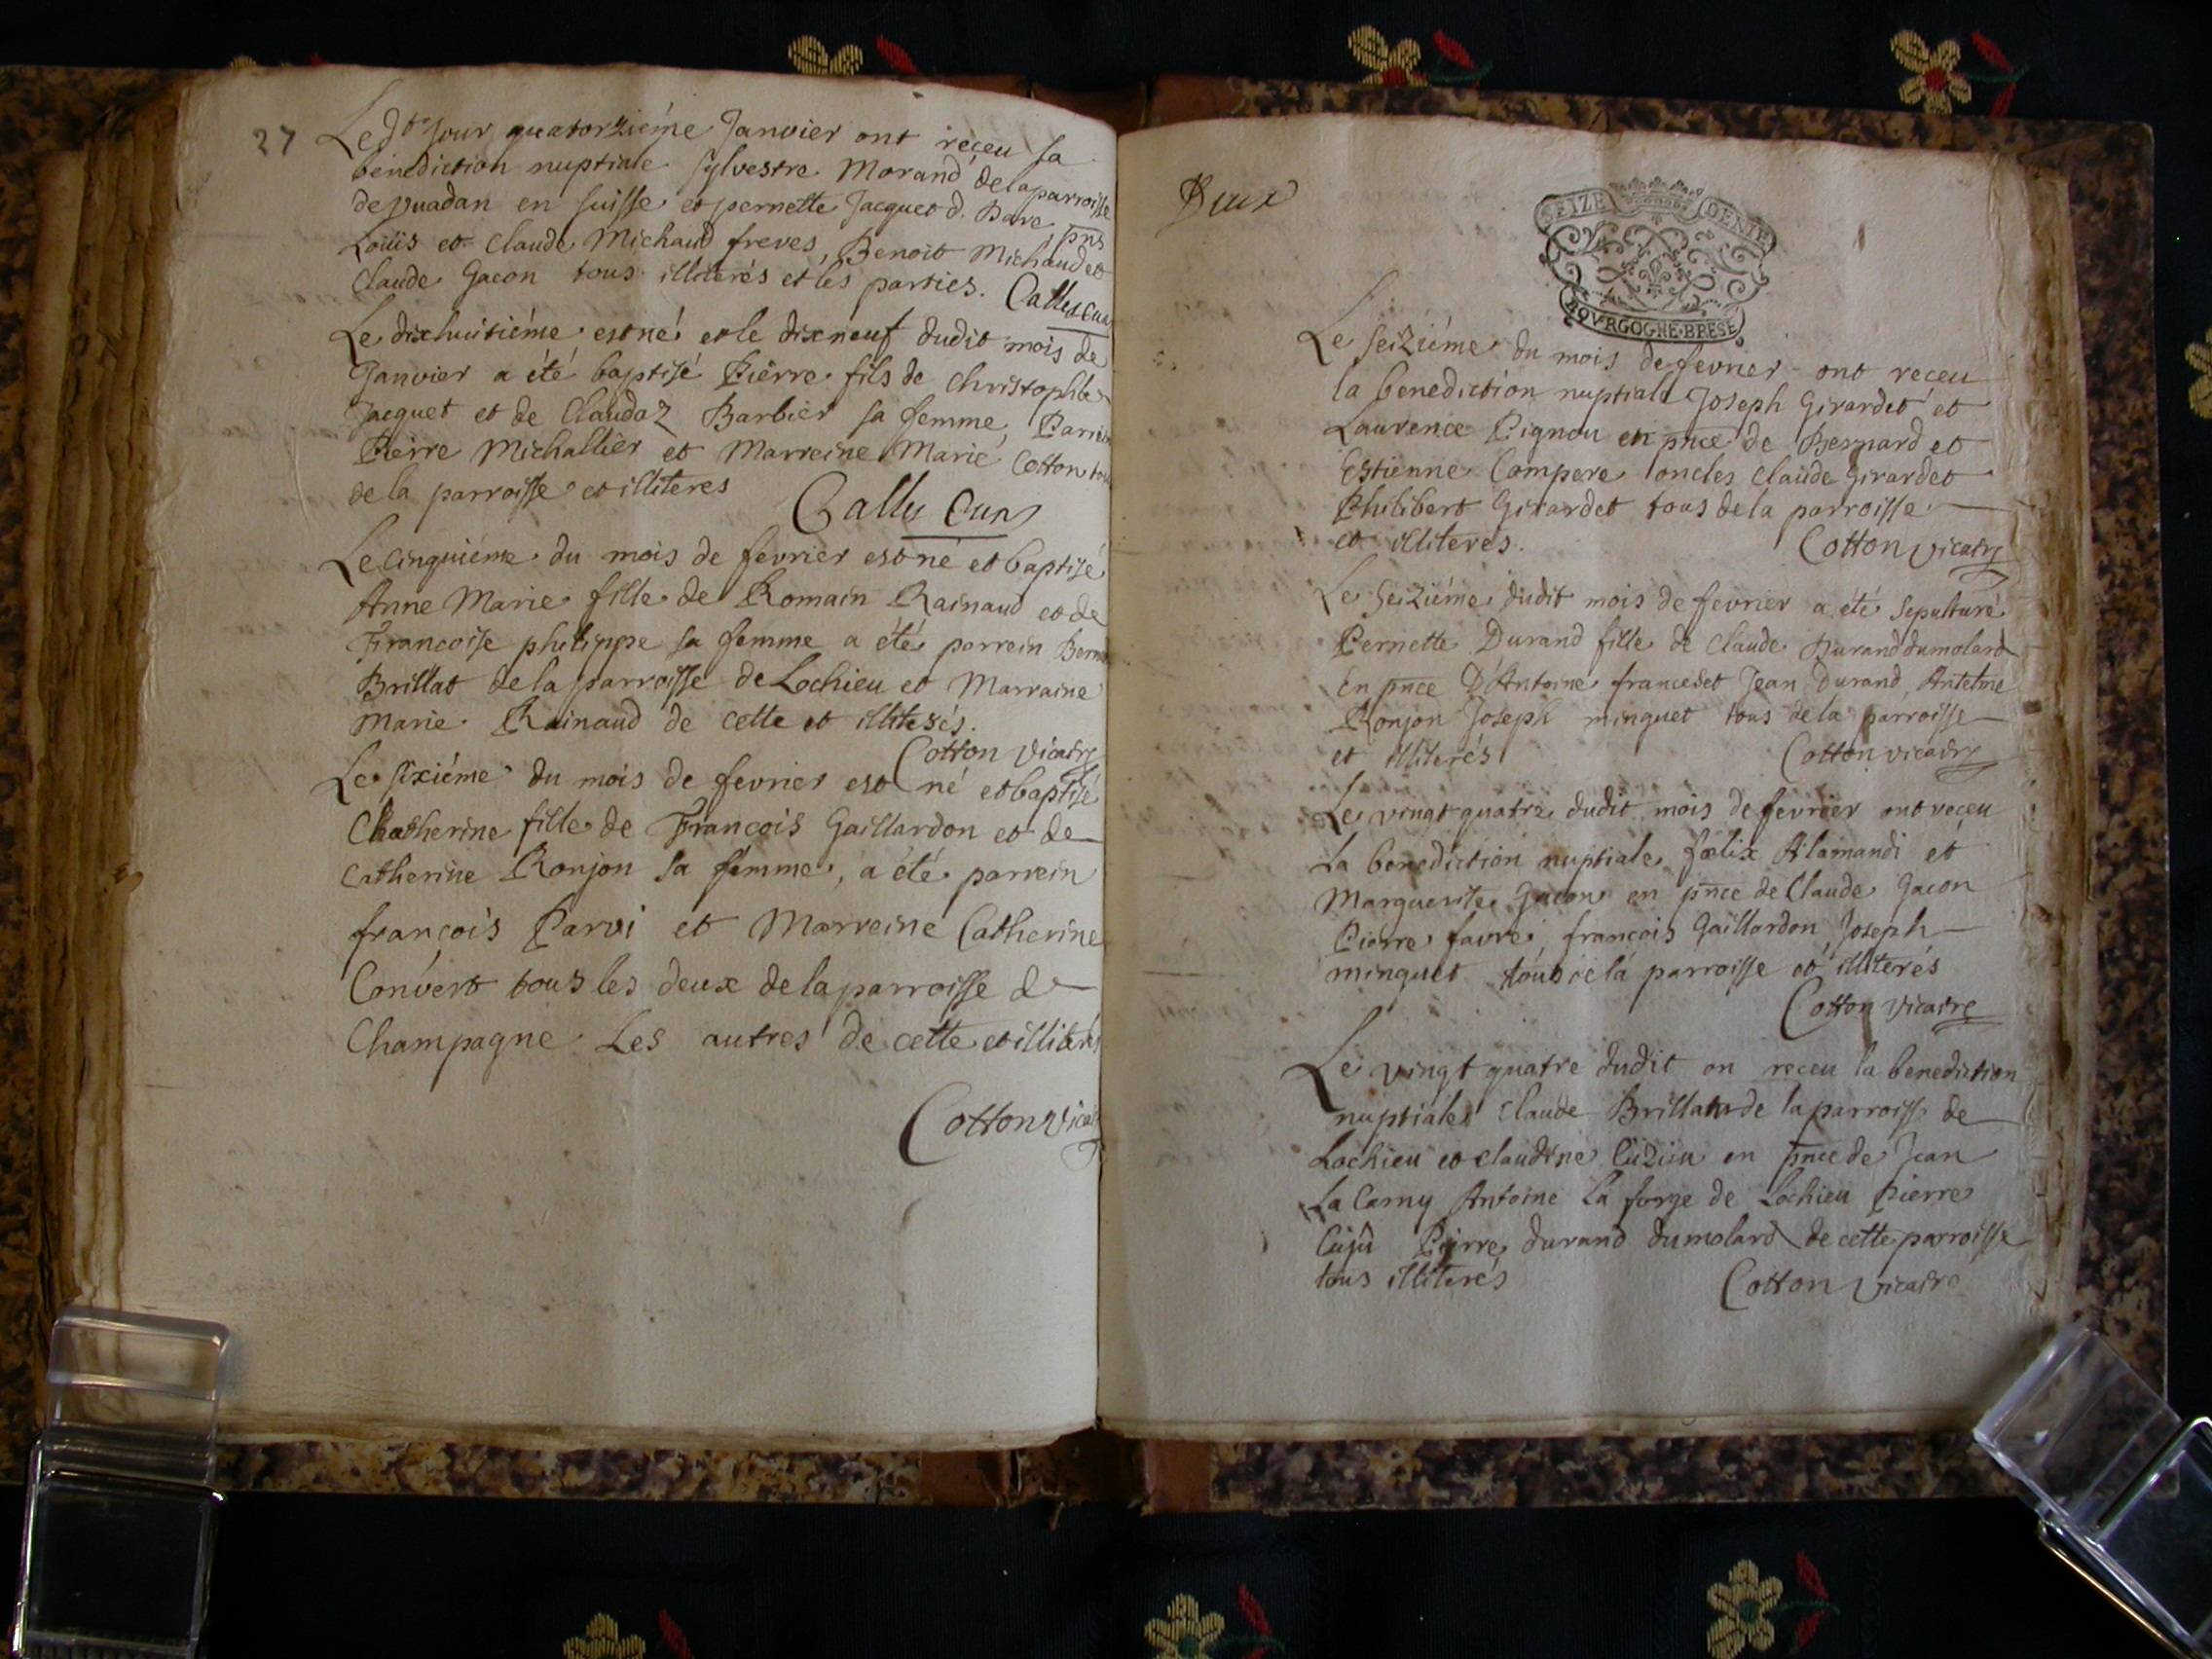 27
Le dt Jour quatorziéme Janvier ont reçeu la
benediction nuptiale Sylvestre Morand de la parroisse
de en Suisse et pernette Jacquet
Loüis et Claude Michaud freres, Benoit Michaud et
Claude Gacon tous illiterés et les parties.
Le dixhuitiéme est né et le dixneuf dudit mois de
Janvier a été baptisé Piérre fils de Christophle
Jacquet et de Claudaz Barbier sa femme,
Pierre Michallier et Marreine Marie Cotton
de la parroisse et illiteres
Le Cinquiéme du mois de fevrier est né et baptisé
Anne Marie fille de Romain Rainaud et de
Francoise philippe sa femme a été parrein
Brillat de la parroisse de Lochieu et Marraine
Marie Rainaud de cette et illiterés.
Cotton vicaire
Le sixiéme du mois de fevrier est né et baptisé
Chatherine fille de François Gaillardon et de
Catherine Ronjon sa femme, a été parrein
françois Parvi et Marreine Catherine
Convert tous les deux de la parroisse de
Champagne Les autres de cette et illiterés
Cotton
Deux
SEIZE DENIE
BOVRGOGNE·BRESE
Le seiziéme du mois de fevrier ont reçeu
la benediction nuptiale Joseph Girardet et
Laurence Pignou en pnce de Bernard et
Estienne Compere oncles Claude Girardet
Philibert Girardet tous de la parroisse
et illiteres.
Cotton vicaire
Le seiziéme dudit mois de fevrier a été sepulturé
Pernette Durand fille de Claude Durand dumolard
En pnce D'Antoine francedet Jean Durand, Antelme
Ronjon Joseph minguet tous de la parroisse
et illiterés
Cotton vicaire
Le vingt quatre dudit mois de fevrier ont reçeu
La benediction nuptiale fœlix Alamandi et
Marguerite Gacon en pnce de Claude Gacon
Pierre favre, françois Gaillardon, Joseph
minguet tous de la parroisse et illiterés
Cotton vicaire
Le vingt quatre dudit on receu la benediction
nuptiale Claude Brillat de la parroisse de
Lochieu et claudine Cuziu en pnce de Jean
La Carny Antoine La forge de Lochieu Pierre
Pierre durand dumolard de cette parroisse
tous illiterés
Cotton vicaire